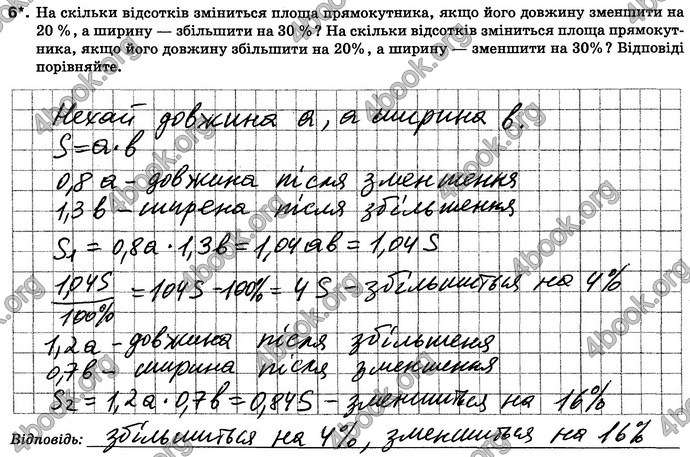 6*. На скільки відсотків зміниться площа прямокутника, якщо його довжину зменшити на
20 %, а ширину — збільшити на 30 %? На скільки відсотків зміниться площа прямокут-
ника, якщо його довжину збільшити на 20%, а ширину — зменшити на 30%? Відповіді
порівняйте.
Нехай довжина a, а ширина b.
S=a·b
0,8a – довжина після зменшення
1,3b – ширена після збільшення
S₁ = 0,8a·1,3b = 1,04ab = 1,04S
1,04S/100% = 104S – 100% = 4S – збільшиться на 4%
1,2a – довжина після збільшеня
0,7b – ширина після зменшення
S₂ = 1,2a·0,7b = 0,84S – зменшиться на 16%
Відповідь: збільшиться на 4%, зменшиться на 16%
4book.org